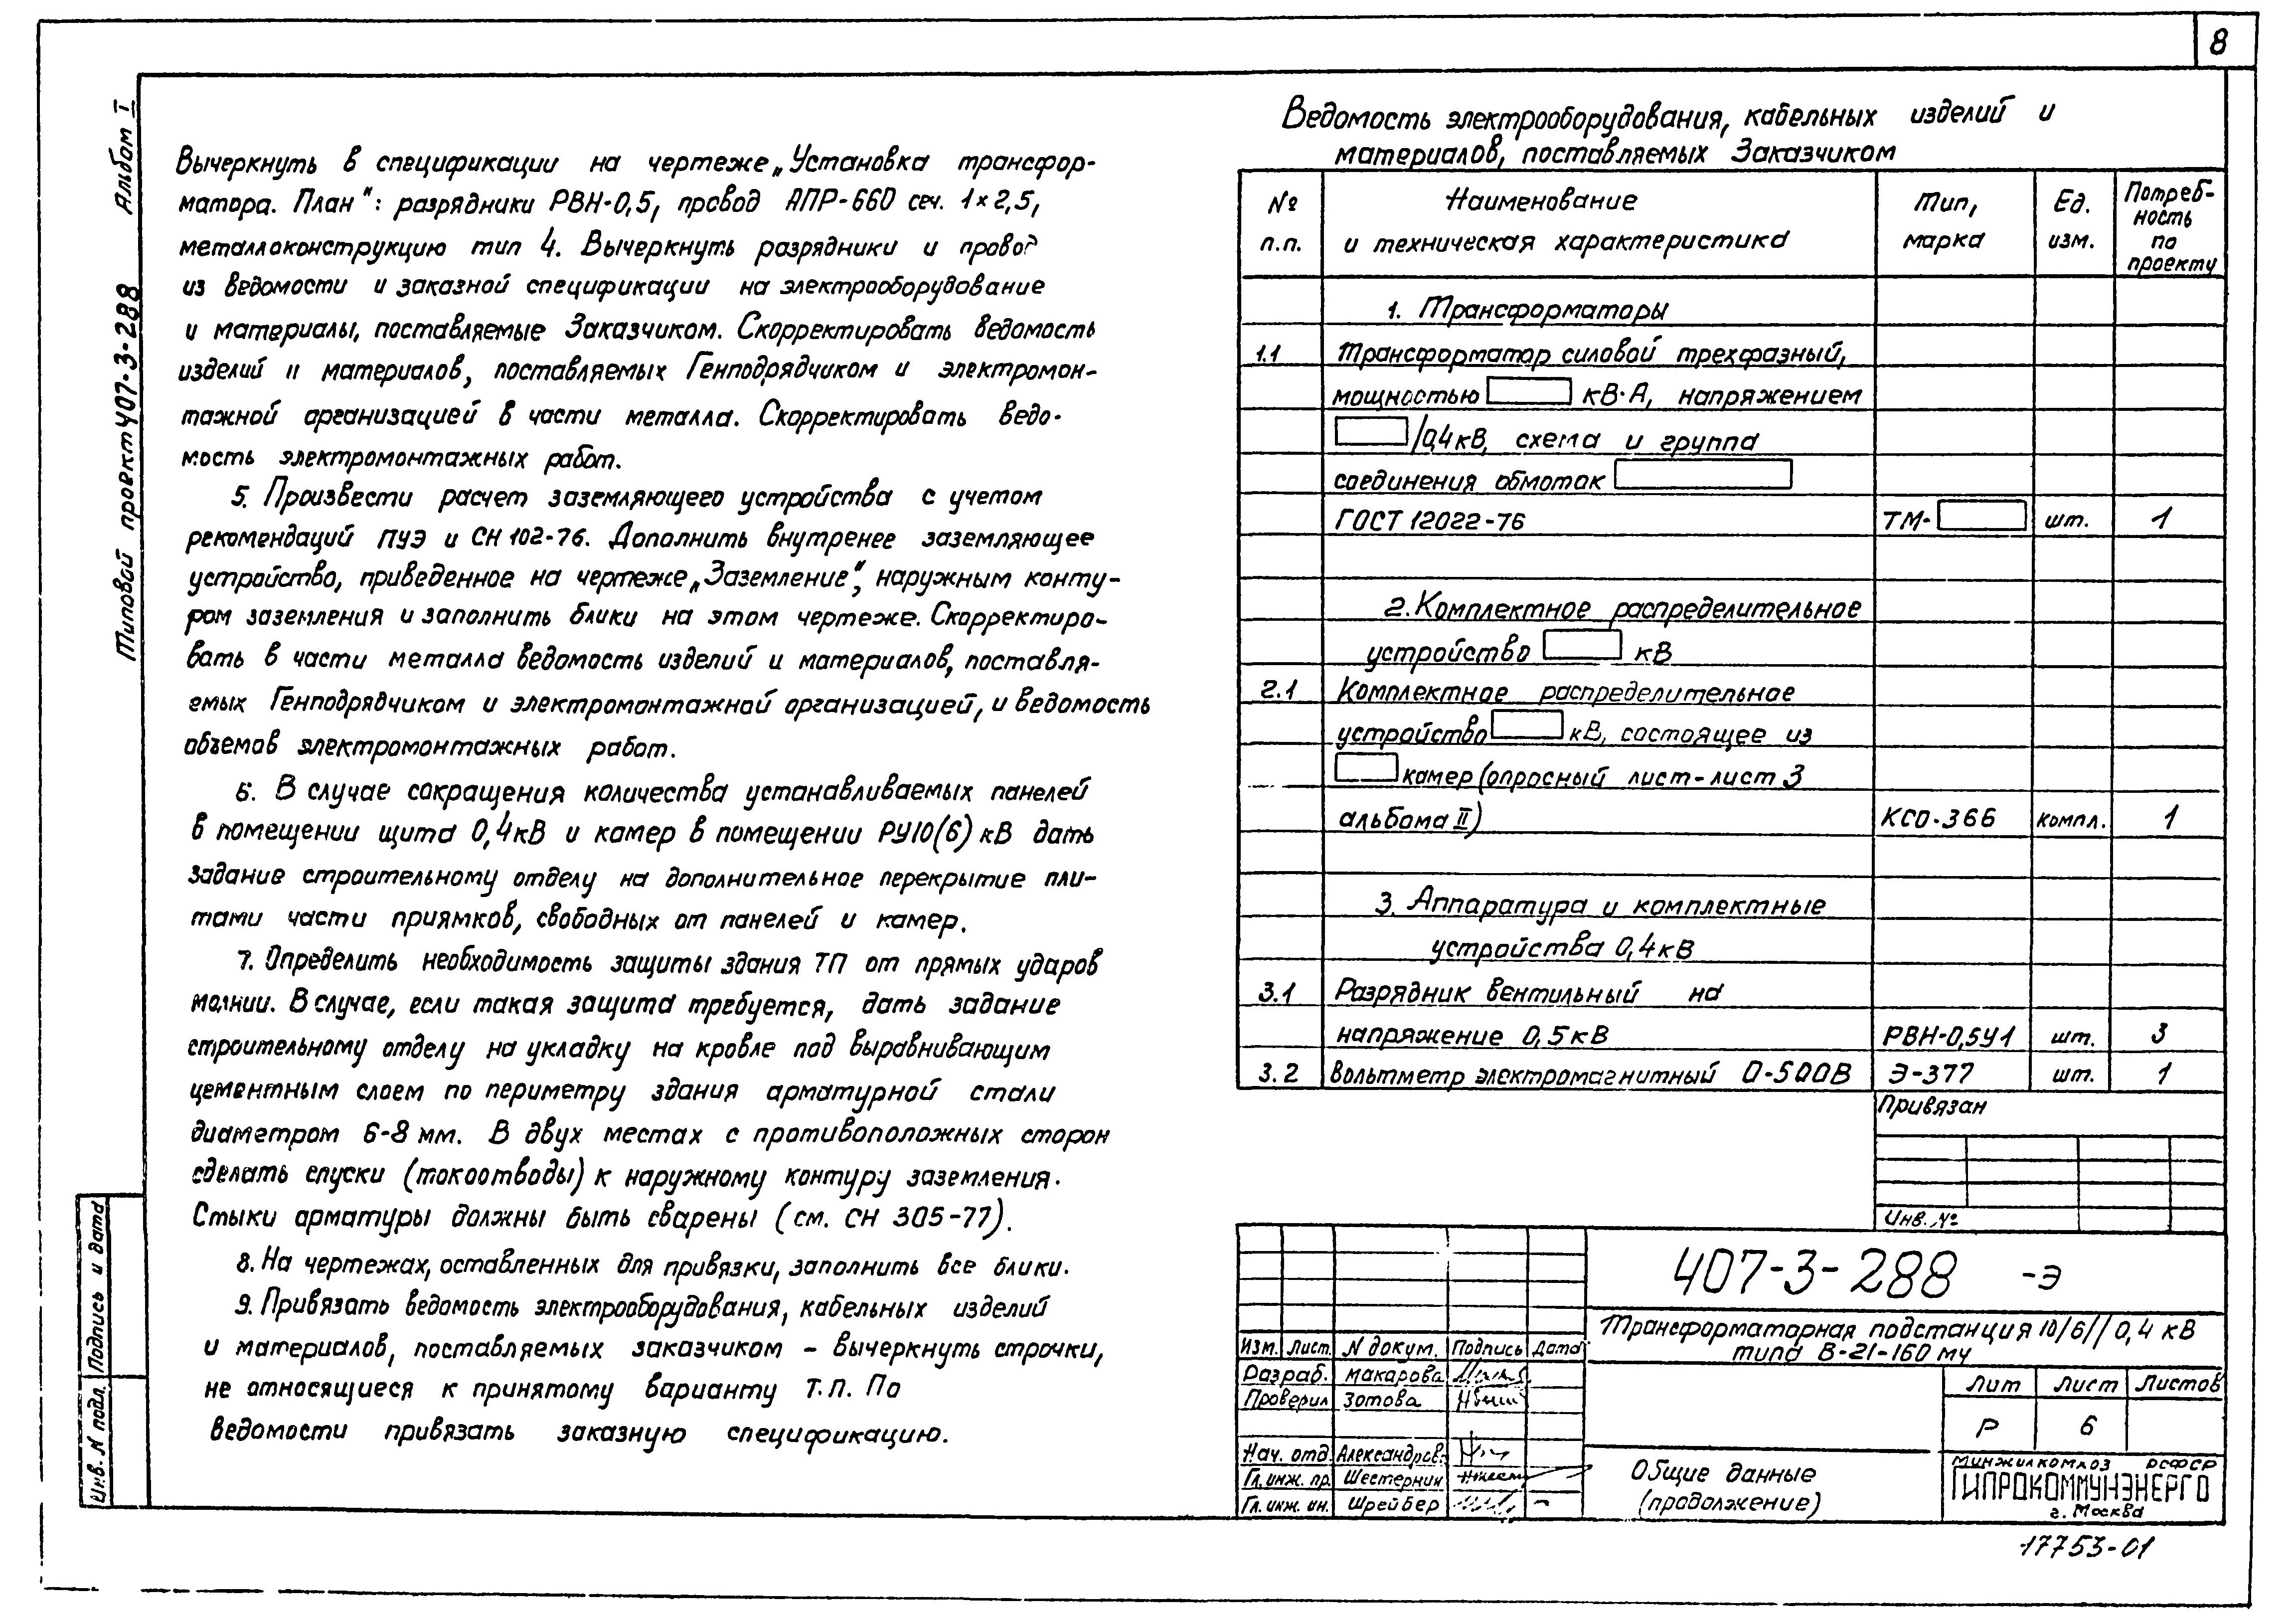 8
Типовой проект 407-3-288 Альбом I
Вычеркнуть в спецификации на чертеже „Установка трансфор-
матора. План": разрядники РВН-0,5, провод АПР-660 сеч. 1×2,5,
металлоконструкцию тип 4. Вычеркнуть разрядники и провод
из ведомости и заказной спецификации на электрооборудование
и материалы, поставляемые Заказчиком. Скорректировать ведомость
изделий и материалов, поставляемых Генподрядчиком и электромон-
тажной организацией в части металла. Скорректировать ведо-
мость электромонтажных работ.
5. Произвести расчет заземляющего устройства с учетом
рекомендаций ПУЭ и СН 102-76. Дополнить внутренее заземляющее
устройство, приведенное на чертеже „Заземление", наружным конту-
ром заземления и заполнить блики на этом чертеже. Скорректиро-
вать в части металла ведомость изделий и материалов, поставля-
емых Генподрядчиком и электромонтажной организацией, и ведомость
объемов электромонтажных работ.
6. В случае сокращения количества устанавливаемых панелей
в помещении щита 0,4кВ и камер в помещении РУ10(6) кВ дать
задание строительному отделу на дополнительное перекрытие пли-
тами части приямков, свободных от панелей и камер.
7. Определить необходимость защиты здания ТП от прямых ударов
молнии. В случае, если такая защита требуется, дать задание
строительному отделу на укладку на кровле под выравнивающим
цементным слоем по периметру здания арматурной стали
диаметром 6-8 мм. В двух местах с противоположных сторон
сделать спуски (токоотводы) к наружному контуру заземления.
Стыки арматуры должны быть сварены (см. СН 305-77).
8. На чертежах, оставленных для привязки, заполнить все блики.
9. Привязать ведомость электрооборудования, кабельных изделий
и материалов, поставляемых заказчиком - вычеркнуть строчки,
не относящиеся к принятому варианту т.п. По
ведомости привязать заказную спецификацию.
Ведомость электрооборудования, кабельных изделий и
материалов, поставляемых Заказчиком
№ п.п. Наименование и техническая характеристика Тип, марка Ед. изм. Потреб-ность по проекту
1. Трансформаторы
1.1 Трансформатор силовой трехфазный,
мощностью кВ·А, напряжением
/0,4кВ, схема и группа
соединения обмоток
ГОСТ 12022-76 ТМ- шт. 1
2. Комплектное распределительное
устройство кВ
2.1 Комплектное распределительное
устройство кВ, состоящее из
камер (опросный лист-лист 3
альбома II) КСО-366 компл. 1
3. Аппаратура и комплектные
устройства 0,4кВ
3.1 Разрядник вентильный на
напряжение 0,5кВ РВН-0,5У1 шт. 3
3.2 Вольтметр электромагнитный 0-500В Э-377 шт. 1
Привязан
Инв. №
407-3-288 -Э
Трансформаторная подстанция 10/6//0,4 кВ
типа В-21-160 му
Изм. Лист. N докум. Подпись Дата
Разраб. Макарова
Проверил Зотова
Нач. отд. Александров.
Гл. инж. пр. Шестернин
Гл. инж. ин. Шрейбер
Лит Лист Листов
Р 6
Общие данные
(продолжение)
МИНЖИЛКОМХОЗ РСФСР
ГИПРОКОММУНЭНЕРГО
г. Москва
17753-01
Инв. N подл. Подпись и дата